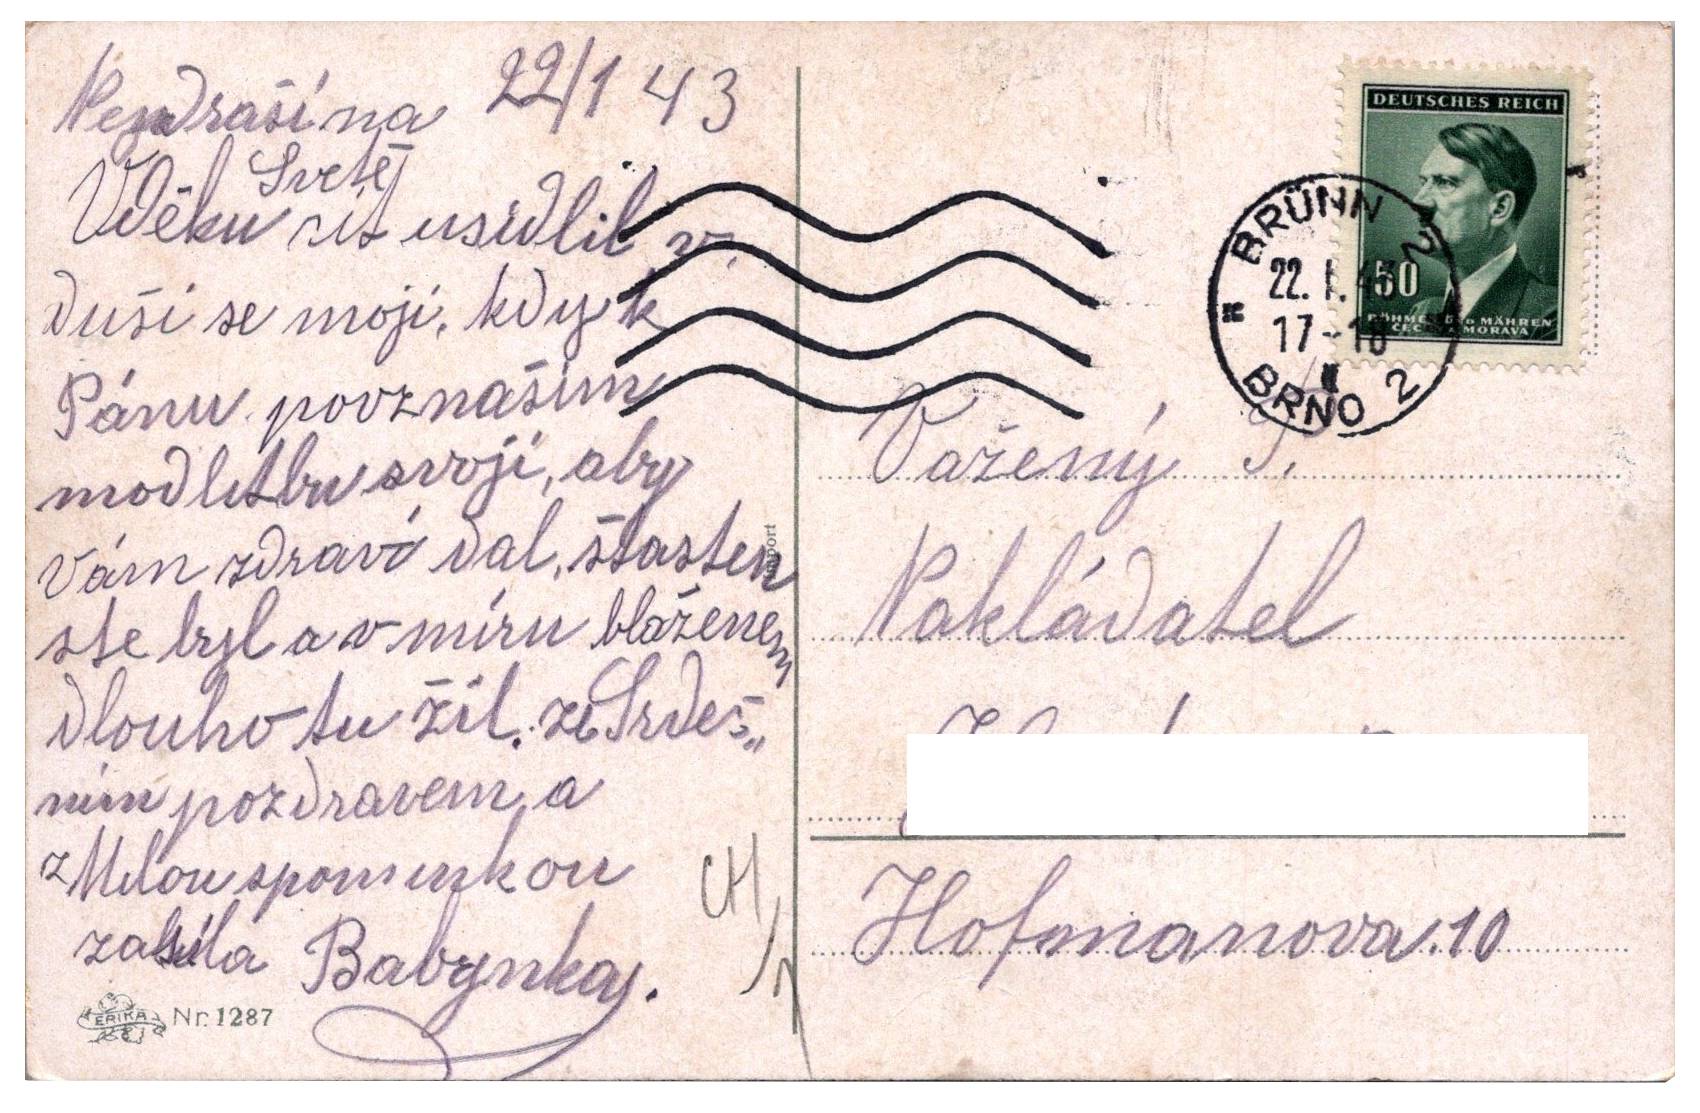 Nejdraší na 22/1 43
Svetě
Vděku cit usidlil v
duši se moji, kdy k
Pánu povznaším
modlitbu svoji, aby
Vám zdraví dal, šťasten
ste byl a v míru blaženem
dlouho tu žil. ze Srdeš„
ním pozdravem, a
z Milou spominkou
zasílá Babynka.
ERIKA Nr. 1287
Import
DEUTSCHES REICH
50
BÖHMEN UND MÄHREN
ČECHY A MORAVA
BRÜNN 2
22. I. 43
17-18
BRNO 2
Vážený P.
Nakládatel
Hofmanova. 10